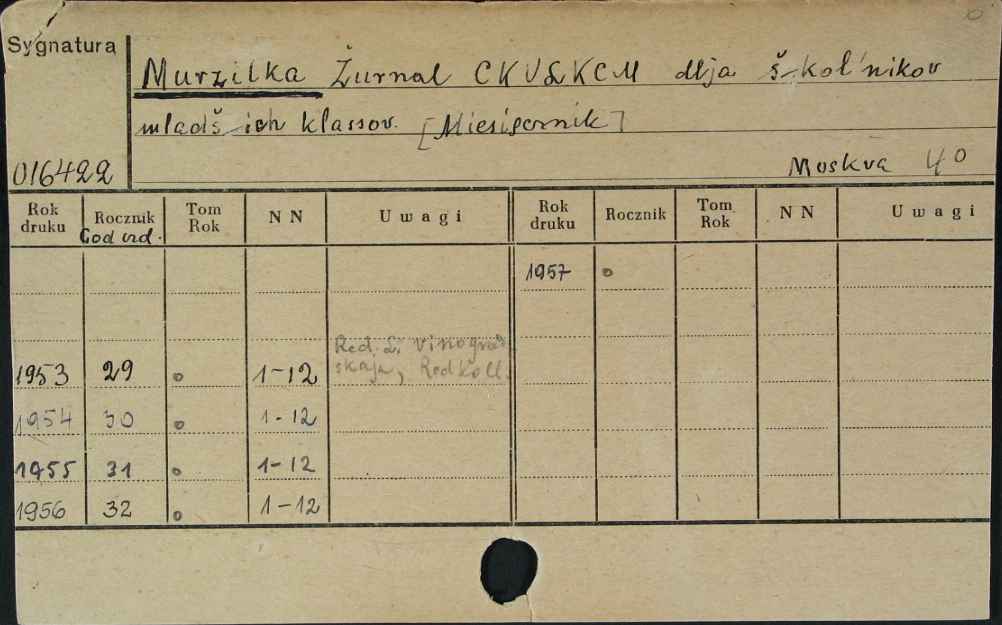 Sygnatura
Murzilka Žurnal CK VLKCM dlja škol'nikov
mladšich klassov. [Miesięcznik]
016422
Moskva 4 0
Rok druku Rocznik God izd. Tom Rok NN Uwagi Rok druku Rocznik Tom Rok NN Uwagi
1957 o
Red. L. Vinograd-
1953 29 o 1-12 skaja, Redkoll.
1954 30 o 1-12
1955 31 o 1-12
1956 32 o 1-12